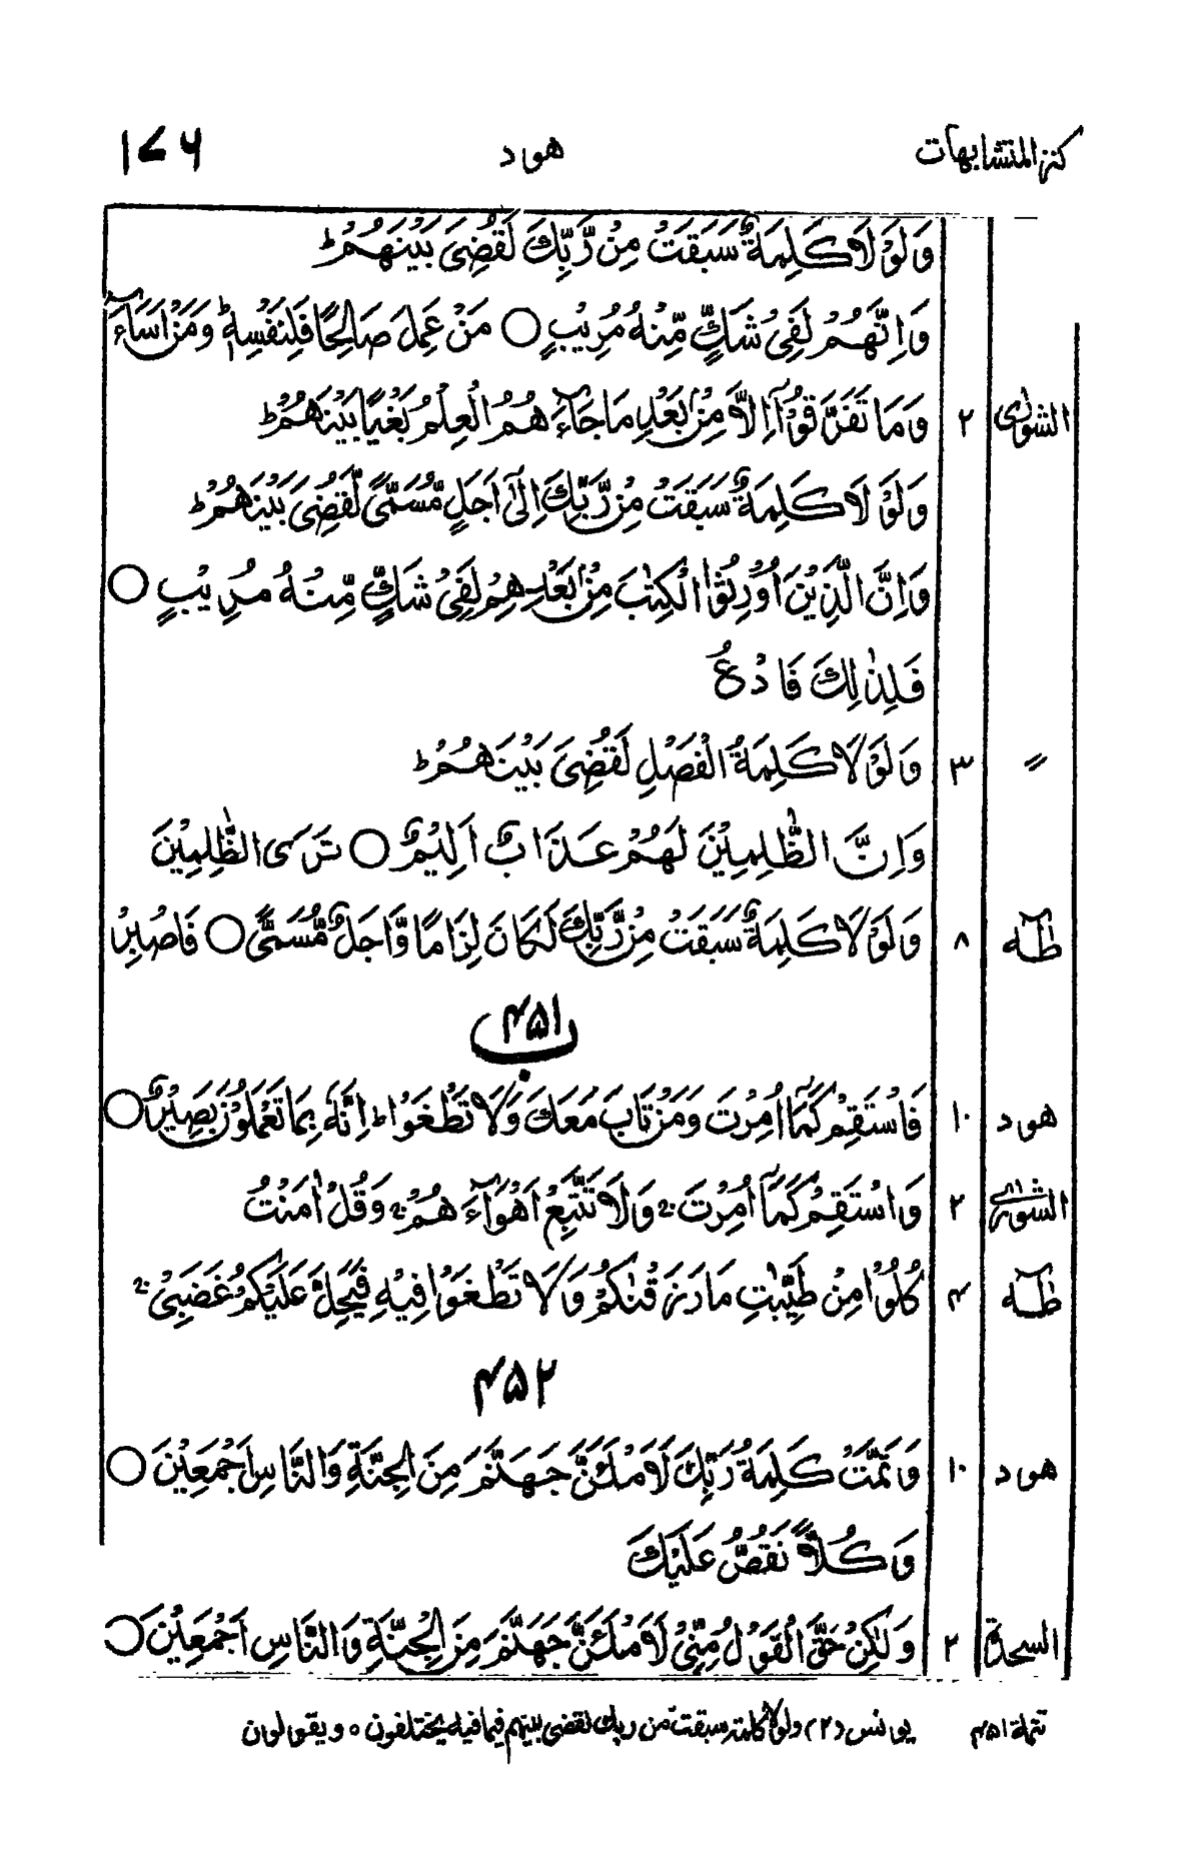 كنز المتشابهات هود ۱۷۶
وَلَوْلَا كَلِمَةٌ سَبَقَتْ مِنْ رَّبِّكَ لَقُضِىَ بَيْنَهُمْ ؕ
وَاِنَّهُمْ لَفِىْ شَكٍّ مِّنْهُ مُرِيْبٍ ○ مَنْ عَمِلَ صَالِحًا فَلِنَفْسِهٖ ؕ وَمَنْ اَسَآءَ
الشورٰى ۲ وَمَا تَفَرَّقُوْٓا اِلَّا مِنْۢ بَعْدِ مَا جَآءَهُمُ الْعِلْمُ بَغْيًۢا بَيْنَهُمْ ؕ
وَلَوْلَا كَلِمَةٌ سَبَقَتْ مِنْ رَّبِّكَ اِلٰٓى اَجَلٍ مُّسَمًّى لَّقُضِىَ بَيْنَهُمْ ؕ
وَاِنَّ الَّذِيْنَ اُوْرِثُوا الْكِتٰبَ مِنْۢ بَعْدِهِمْ لَفِىْ شَكٍّ مِّنْهُ مُرِيْبٍ ○
فَلِذٰلِكَ فَادْعُ
〃 ۳ وَلَوْلَا كَلِمَةُ الْفَصْلِ لَقُضِىَ بَيْنَهُمْ ؕ
وَاِنَّ الظّٰلِمِيْنَ لَهُمْ عَذَابٌ اَلِيْمٌ ○ تَرَى الظّٰلِمِيْنَ
طٰهٰ ۸ وَلَوْلَا كَلِمَةٌ سَبَقَتْ مِنْ رَّبِّكَ لَكَانَ لِزَامًا وَّاَجَلٌ مُّسَمًّى ○ فَاصْبِرْ
۴۵۱ ب
هود ۱۰ فَاسْتَقِمْ كَمَآ اُمِرْتَ وَمَنْ تَابَ مَعَكَ وَلَا تَطْغَوْا ؕ اِنَّهٗ بِمَا تَعْمَلُوْنَ بَصِيْرٌ ○
الشورٰى ۲ وَاسْتَقِمْ كَمَآ اُمِرْتَ ۚ وَلَا تَتَّبِعْ اَهْوَآءَهُمْ ۚ وَقُلْ اٰمَنْتُ
طٰهٰ ۴ كُلُوْا مِنْ طَيِّبٰتِ مَا رَزَقْنٰكُمْ وَلَا تَطْغَوْا فِيْهِ فَيَحِلَّ عَلَيْكُمْ غَضَبِىْ ۚ
۴۵۲
هود ۱۰ وَتَمَّتْ كَلِمَةُ رَبِّكَ لَاَمْلَئَنَّ جَهَنَّمَ مِنَ الْجِنَّةِ وَالنَّاسِ اَجْمَعِيْنَ ○
وَكُلًّا نَّقُصُّ عَلَيْكَ
السجدة ۲ وَلٰكِنْ حَقَّ الْقَوْلُ مِنِّىْ لَاَمْلَئَنَّ جَهَنَّمَ مِنَ الْجِنَّةِ وَالنَّاسِ اَجْمَعِيْنَ ○
تتمة ۴۵۱ يونس (۲) ولولا كلمة سبقت من ربك لقضى بينهم فيما فيه يختلفون ○ ويقولون